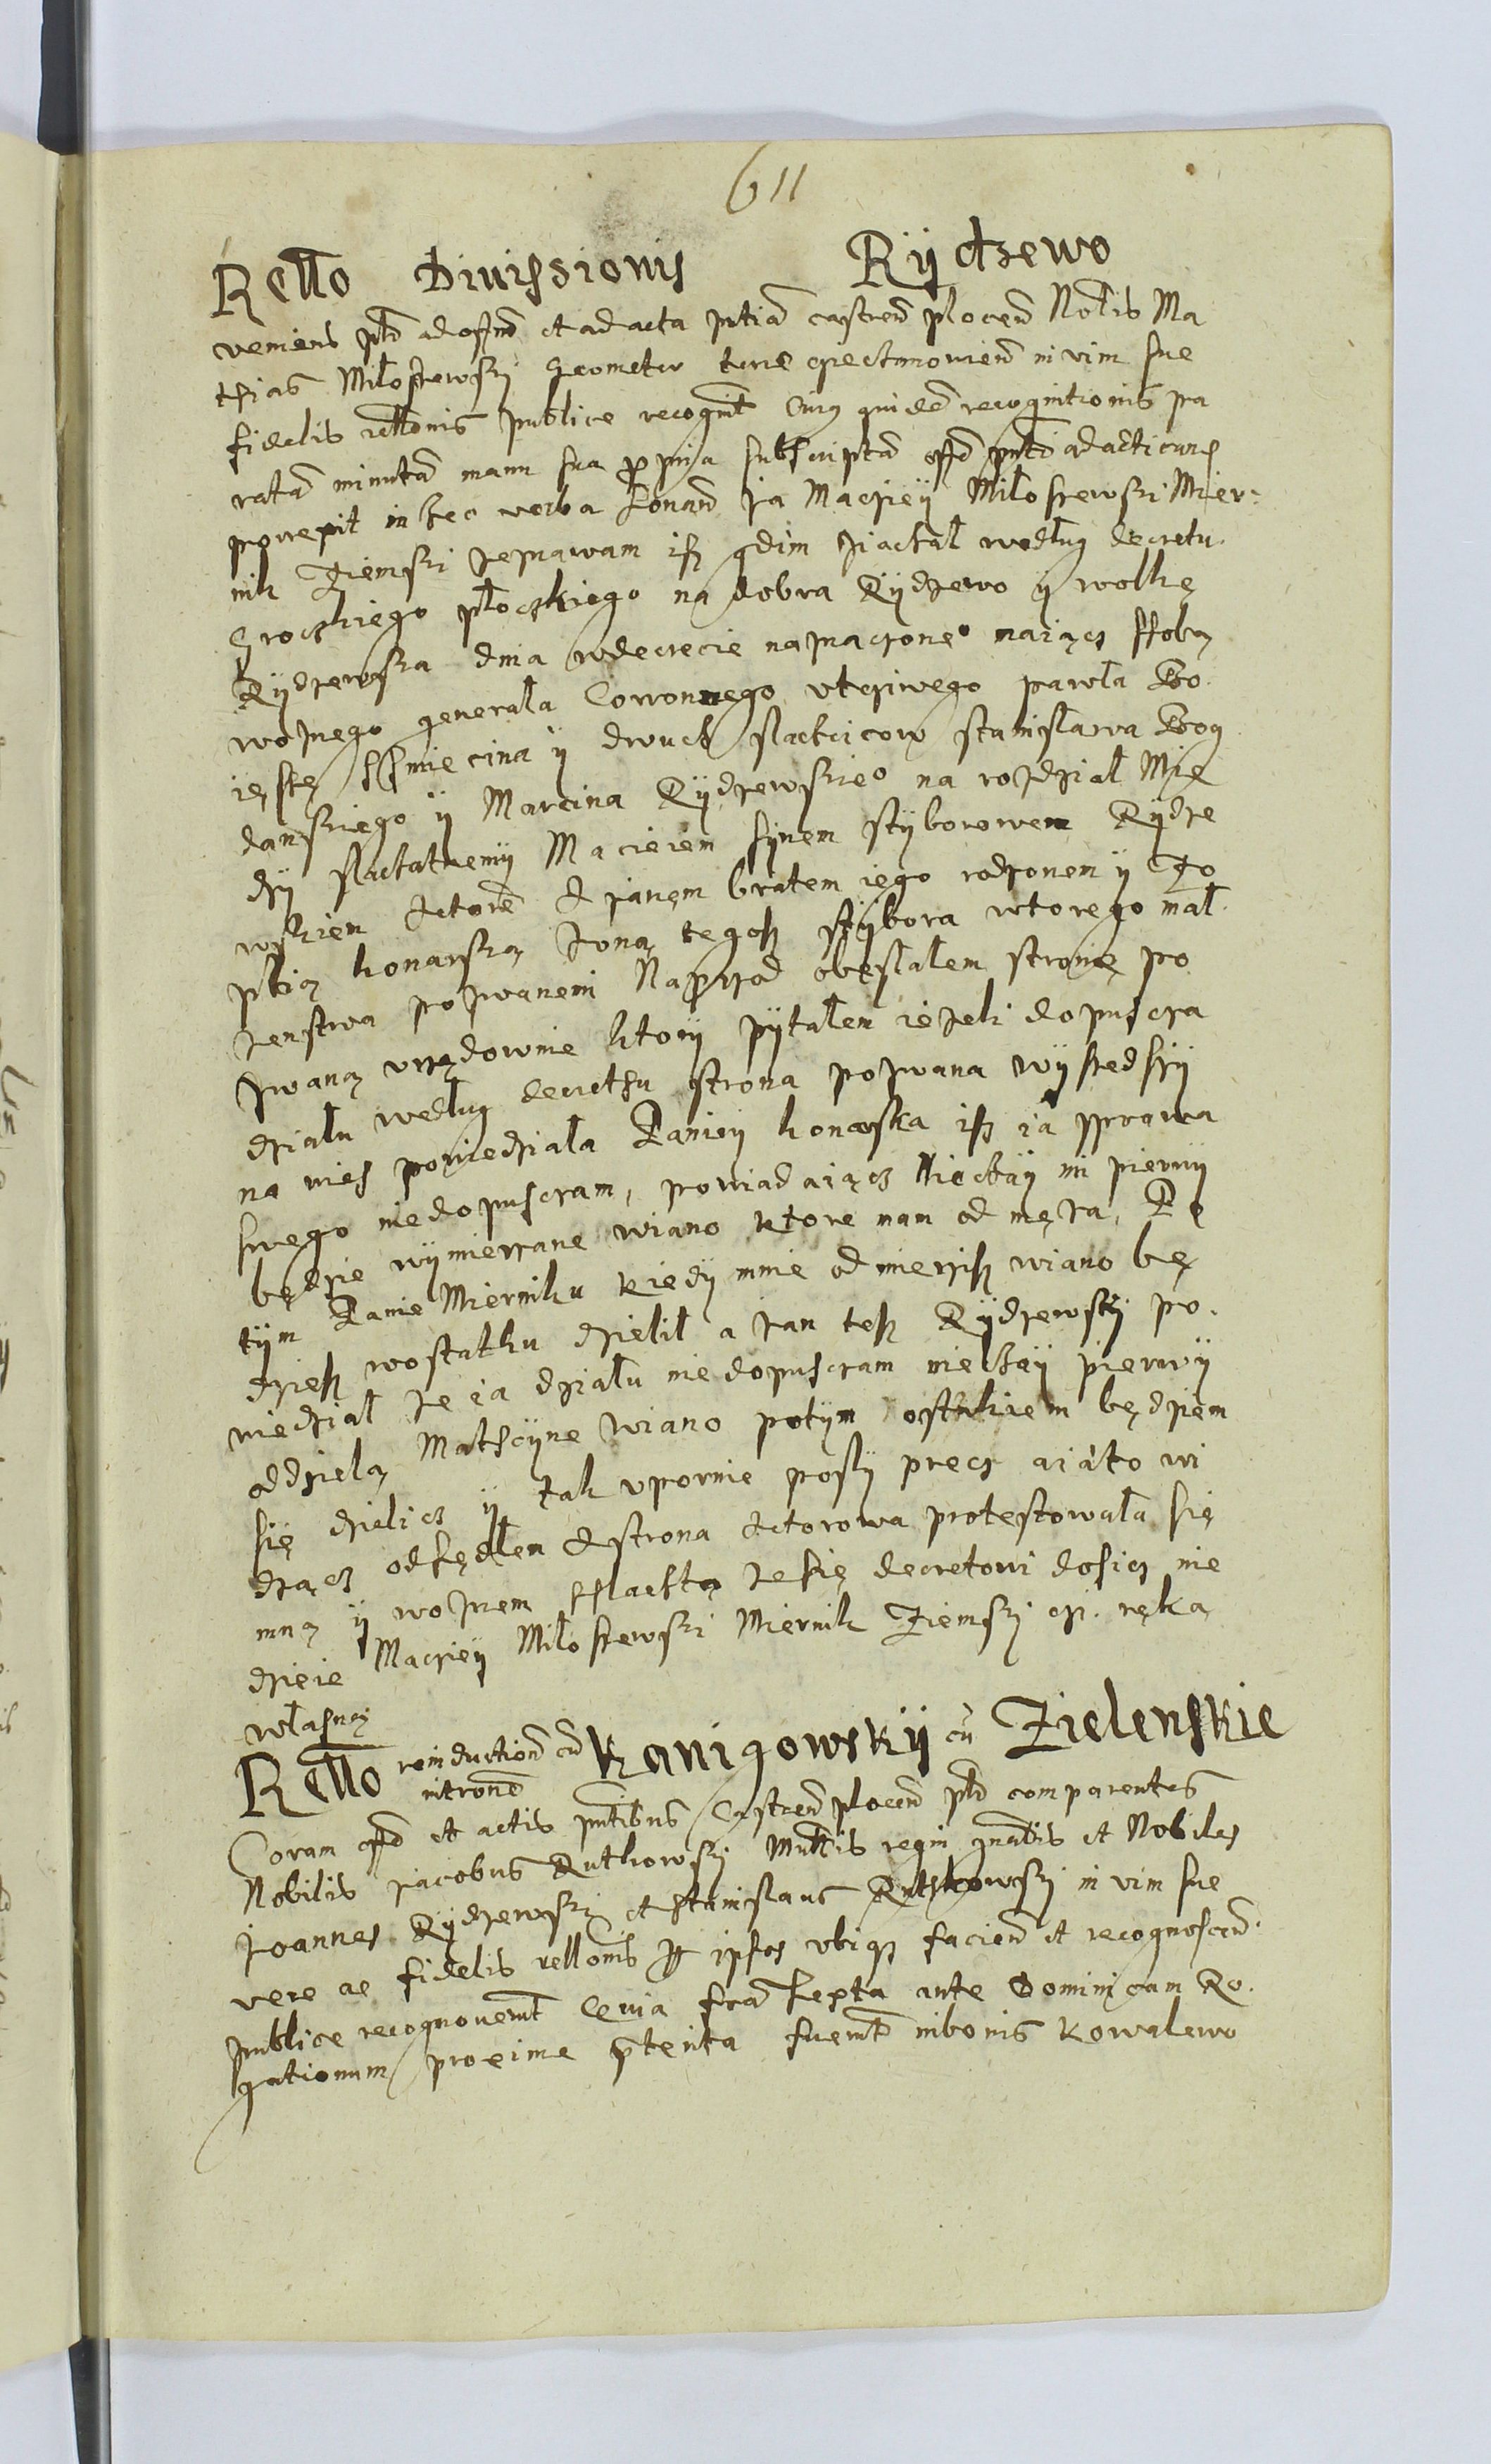 611
Rello Diuissionis Rydzewo
veniens ptr ad offm et ad acta pntia castren plocen Nobilis Ma
thias Miloszewsky Geometer terre ciechanouien in vim sue
fidelis rellonis publice recognit Cuius quidem recognitionis pa
ratam minutam manu sua propria subscriptam offo pnti ad acticand
porrexit in hec verba sonan Ja Macziey Miloszewski Mier:
nik Ziemski zeznawam isz gdim ziachal według decretu
Groczkiego płoczkiego na dobra Rydzewo y wolkę
Rydzewską dnia w decrecie naznaczone° maiącz ssobą
woznego generala Coronnego vtciwego pawla Bo
ięstę Smiecina y dwuch slachcicow stanislawa Bog
danskiego y Marcina Rydzewskie° na rozdział Mię
dzy slachetnemy Macieiem synem styborowem Rydze
wskiem actorem A janem bratem iego rodzonem y Zo
phią konarską zoną tegosz stybora wtorego mal
zenstwa pozwanemi Naprzod obeslalem stronę po
zwaną vrzędownie ktory pytalem iezeli dopuscza
działu wedlug decrethu strona pozwana wyszedszy
na wies powiedziala Paniey konarska isz ia sprawa
swego niedopusczam, powiadaiącz Niechay mi pierwy
będzie wymierzane wiano ktore mam od męza, Po
tym Panie Mierniku kiedy mnie odmierzisz wiano bę
dziesz wostatku dzielił a Jan tesz Rydzewsky po
wiedzial ze ia działu nie dopusczam niechay pierwy
oddzielą Mathczyne wiano potym ostatkiem będziem
się dzielicz y tak vpornie poszly precz a ia to wi
dzącz odszedlem A strona Actorowa protestowała się
mną y woznem sslachtą ze się decretowi dosicz nie
dzieie Macziey Miloszewski Miernik Ziemsky cz. ręką
własną
Rello reinduction cu Kanigowsky cu Zielenskie
intromis
Coram offo et actis pntibus Castren plocen ptr comparentes
Nobilis Jacobus Rutkowsky Mnstrlis regni gnalis et Nobiles
Joannes Rydzewsky et stanislaus Rutkowsky in vim sue
vere ac fidelis rellonis per ipsos vbiqz facien et recognoscen
publice recognouerunt Quia fria sexta ante Dominicam Ro
gationum proxime preterita fuerunt in bonis Kowalewo